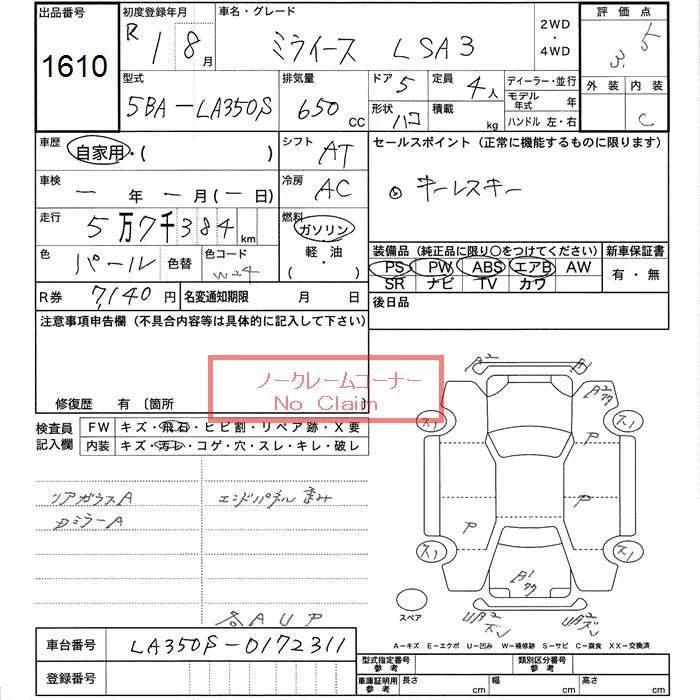 出品番号 初度登録年月 車名・グレード 2WD・4WD 評価点
1610
R 1 8月 ミライース LSA3 3.5
外装 内装
C
型式 排気量 ドア 定員 ディーラー・並行
5BA-LA350S 650 CC 5 4人 モデル年式 年
形状 ハコ 積載 kg ハンドル 左・右
車歴 自家用・( ) シフト AT セールスポイント (正常に機能するものに限ります)
車検 ー年ー月(ー日) 冷房 AC ◎ キーレスキー
走行 5万7千384km 燃料 ガソリン 軽・油 ( )
色 パール 色替 色コード W24
装備品 (純正品に限り〇をつけてください) 新車保証書
PS PW ABS エアB AW 有・無
SR ナビ TV カワ
R券 7,140円 名変通知期限 月 日 後日品
注意事項申告欄 (不具合内容等は具体的に記入して下さい)
ノークレームコーナー
No Claim
修復歴 有 〔箇所 〕
検査員記入欄 FW キズ・飛石・ヒビ割・リペア跡・X要
内装 キズ・汚レ・コゲ・穴・スレ・キレ・破レ
リアガラスA エンドパネル歪み
ミラーA
各AUP
A2 A1
A2
ス1 ス1
P
P P
ス1 ス1
B1
スペア
UB2 UB2
A-キズ E-エクボ U-凹み W-補修跡 S-サビ C-腐食 XX-交換済
車台番号 LA350S-0172311
登録番号
型式指定番号 参考 類別区分番号 参考
車庫証明用 参考 長さ cm 幅 cm 高さ cm